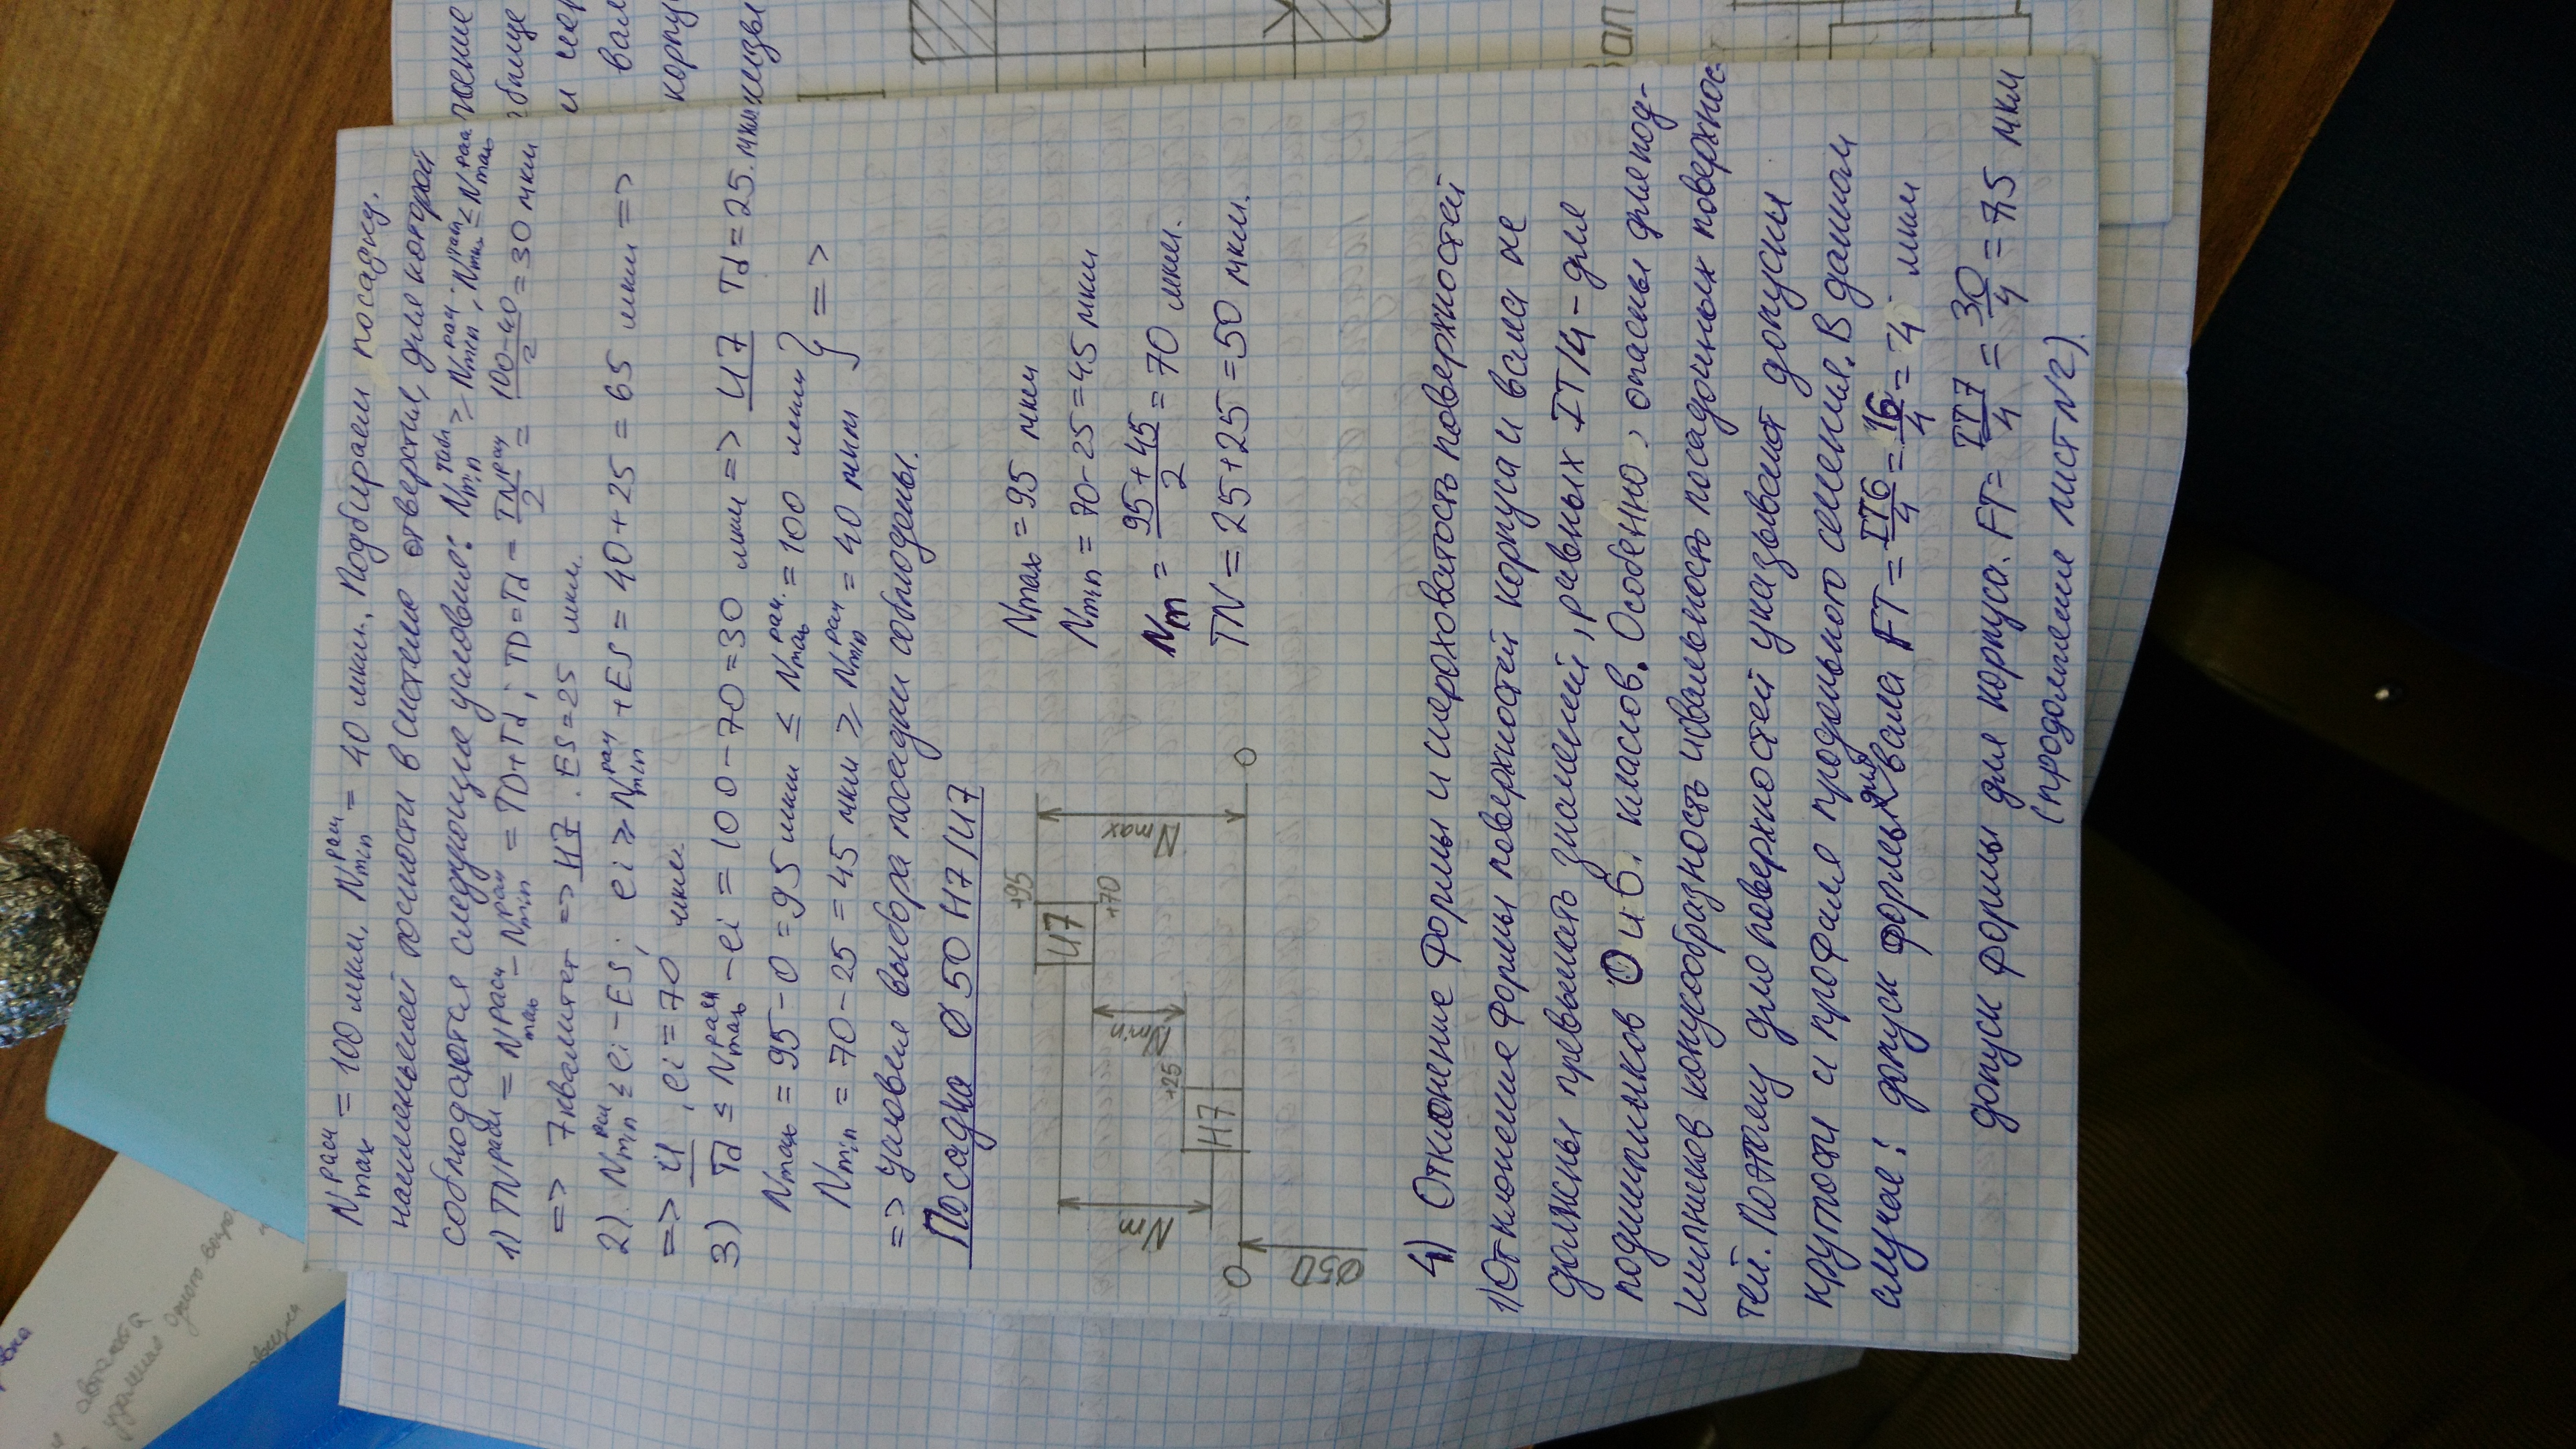 N max расч = 100 мкм, N min расч = 40 мкм. Подбираем посадку.
наименьшей точности в системе отверстия, для которой
соблюдаются следующие условия: N min табл ≥ N min расч; N max табл ≤ N max расч
1) TN расч = N max расч - N min расч = TD+Td; TD=Td= TN расч/2 = 100-40/2 = 30 мкм
=> 7 квалитет => H7. ES=25 мкм.
2). N min рсч ≤ ei - ES; ei ≥ N min расч + ES = 40+25 = 65 мкм =>
=> u, ei = 70 мкм.
3) Td ≤ N max расч - ei = 100-70=30 мкм => u7 Td = 25. мкм.
Nmax = 95-0 = 95 мкм ≤ N max рач. = 100 мкм } =>
Nmin = 70-25 = 45 мкм ≥ N min рач = 40 мкм
=> условия выбора посадки соблюдены.
Посадка Ø 50 H7/u7
+95
u7
+70
Nm
Nmin
Nmax
+25
H7
0
0
Ø50
Nmax = 95 мкм
Nmin = 70-25=45 мкм
Nm = 95+45/2 = 70 мкм.
TN = 25+25 = 50 мкм.
4) Отклонение формы и шероховатость поверхностей
1) Отклонение формы поверхностей корпуса и вала не
должны превышать значений, равных IT/4 - для
подшипников 0 и 6. класов. Особенно, опасны для под-
шипников конусообразность и овальность посадочных поверхнос-
тей. Поэтому для поверхностей указывают допуски
круглости и профиля продольного сечения. В данном
случае: допуск формы для вала FT = IT6/4 = 16/4 = 4 мкм
допуск формы для корпуса. FT= IT7/4 = 30/4 = 7,5 мкм
(продолжение лист N2).
чение
блице
вал
корпу
кизы